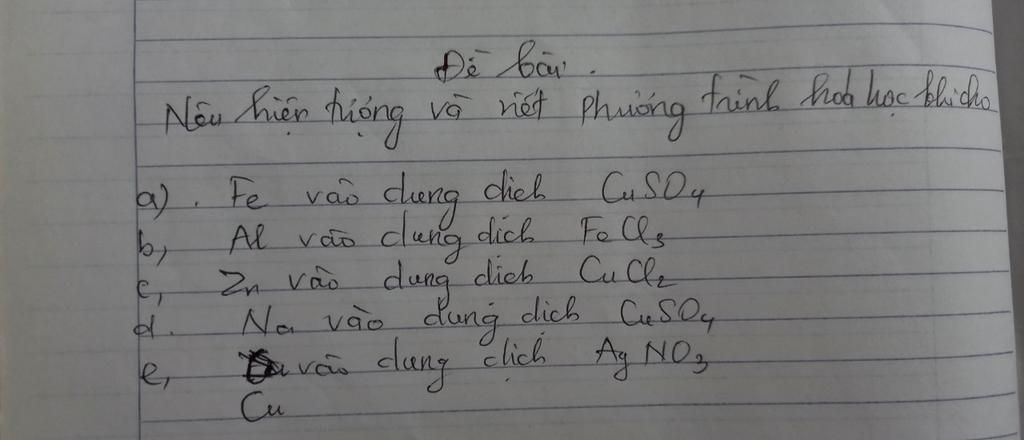 Đề bài.
Nêu hiện tượng và viết phương trình hoá học khi cho
a). Fe vào dung dịch CuSO4
b, Al vào dung dịch FeCl3
c, Zn vào dung dịch CuCl2
d. Na vào dung dịch CuSO4
e, vào dung dịch AgNO3
Cu